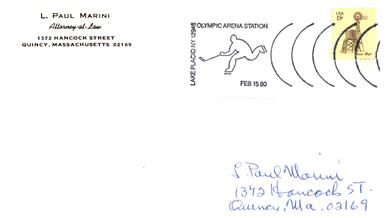 L. PAUL MARINI
Attorney-at-Law
1372 HANCOCK STREET
QUINCY, MASSACHUSETTS 02169
OLYMPIC ARENA STATION
LAKE PLACID NY 12946
FEB 15 80
USA
15c
L Paul Marini
1372 Hancock ST.
Quincy, Ma. 02169